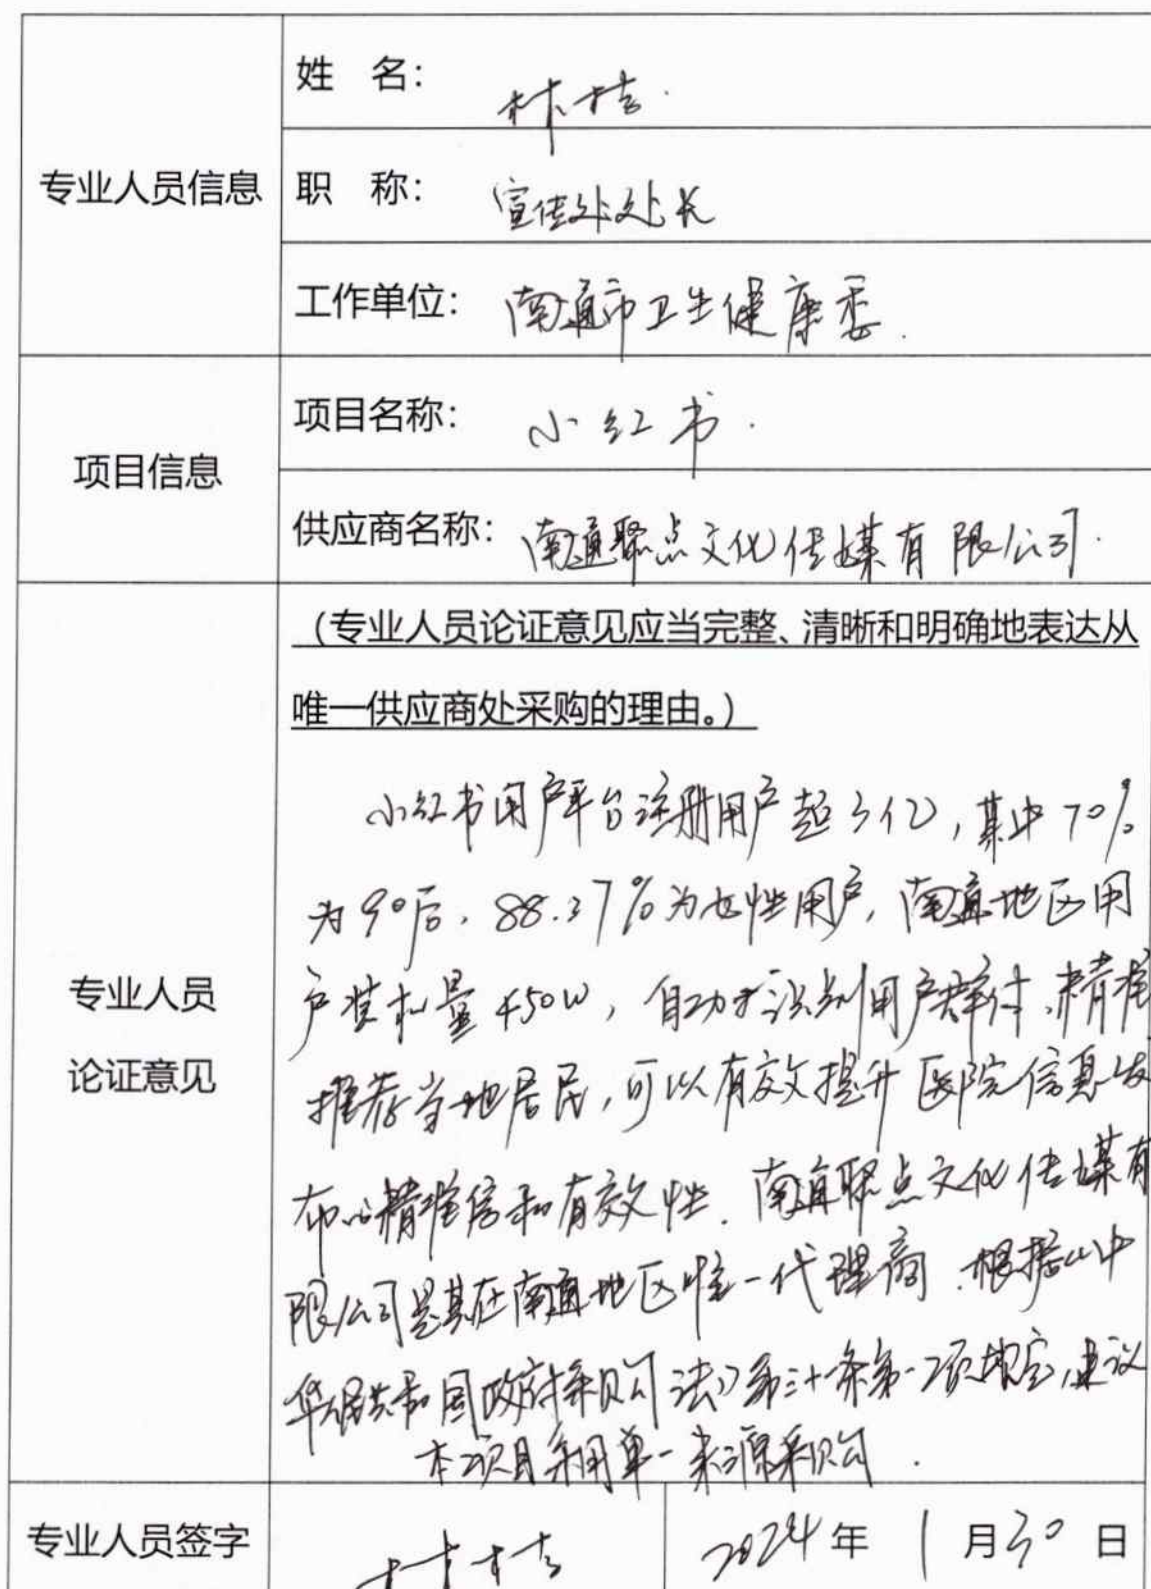 专业人员信息
姓 名： 林桔.
职 称： 宣传处处长
工作单位： 南通市卫生健康委.
项目信息
项目名称： 小红书.
供应商名称： 南通聚点文化传媒有限公司.
专业人员
论证意见
（专业人员论证意见应当完整、清晰和明确地表达从
唯一供应商处采购的理由。）
小红书用户平台注册用户超3亿，其中70%
为90后，88.37%为女性用户，南通地区用
户装机量450W，自动识别用户群体，精准
推荐当地居民，可以有效提升医院信息发
布的精准信和有效性. 南通聚点文化传媒有
限公司是其在南通地区唯一代理商. 根据《中
华人民共和国政府采购法》第三十一条第一项规定，建议
本项目采用单一来源采购.
专业人员签字 林桔 2024年 1月30日